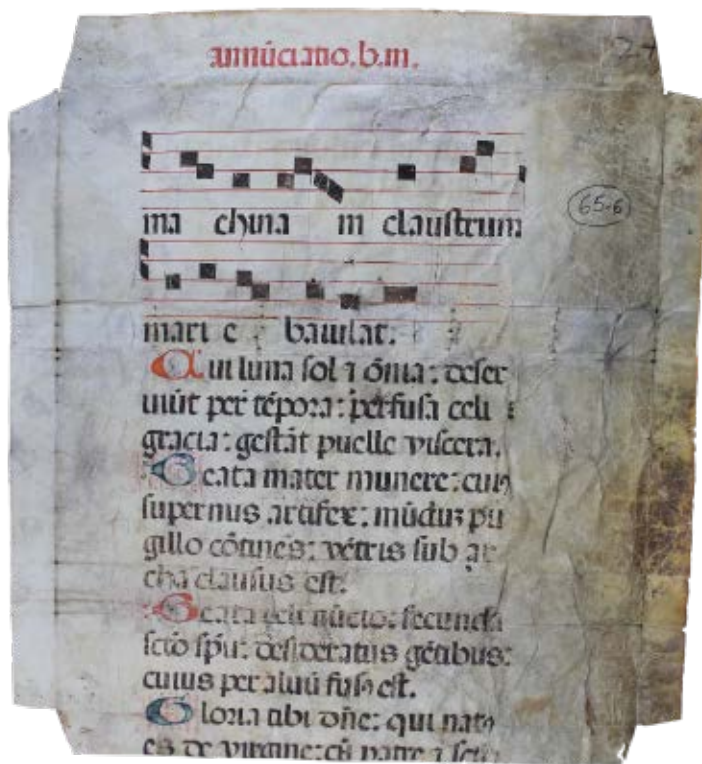 annūciatio. b. m.
65-6
ma china in claustrum
mari e baiulat.
Cui luna sol ⁊ ōnia: deser
uiūt per tēpora: perfusa celi
gracia: gestāt puelle viscera.
Beata mater munere: cuiꝰ
supernus artifex: mūdūꝫ pu
gillo cōtinēs: vētris sub ar
cha clausus est.
Beata celi nūcio: fecunda
scto spū: desideratus gētibus:
cuius per aluū fusꝰ est.
Gloria tibi dñe: qui natꝰ
es de virgine: cū patre ⁊ scto